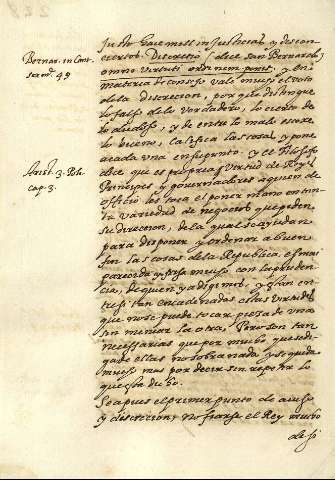 Justo hace mil injusticias, y descon
ciertos. Discretio (dice san Bernardo)
omni virtuti ordinem ponit, y en
materia de consejo vale mucho el voto
de la discrecion, por que distingue
lo falso de lo verdadero, lo cierto de
lo dudoso, y de entre lo malo escoge
lo bueno, califica las cosas, y pone
a cada una en su punto. y el Filosofo
dice que es propria virtud de Reyes
Principes y governadores aquien de
officio les toca el poner mano en tan
ta variedad de negocios que piden
su direcion, de la qual se ayudan
para disponer y ordenar a buen
fin las cosas de la Republica. es mas
parecida y frisa mucho con la pruden
cia, de quien ya digimos, y estan en
tre si tan encadenadas estas virtudes
que no se puede tocar pieza de una
sin menear la otra, Pero son tan
necessarias que por mucho que se di
ga de ellas no sobra nada, y se queda
mucho mas por decir sin repetir lo
que esta dicho.
Sea pues el primer punto de aviso
y discrecion, no fiarse el Rey mucho
de si
Bernar. in Cant.
serm. 49
Arist. 3. Poli.
cap. 3.